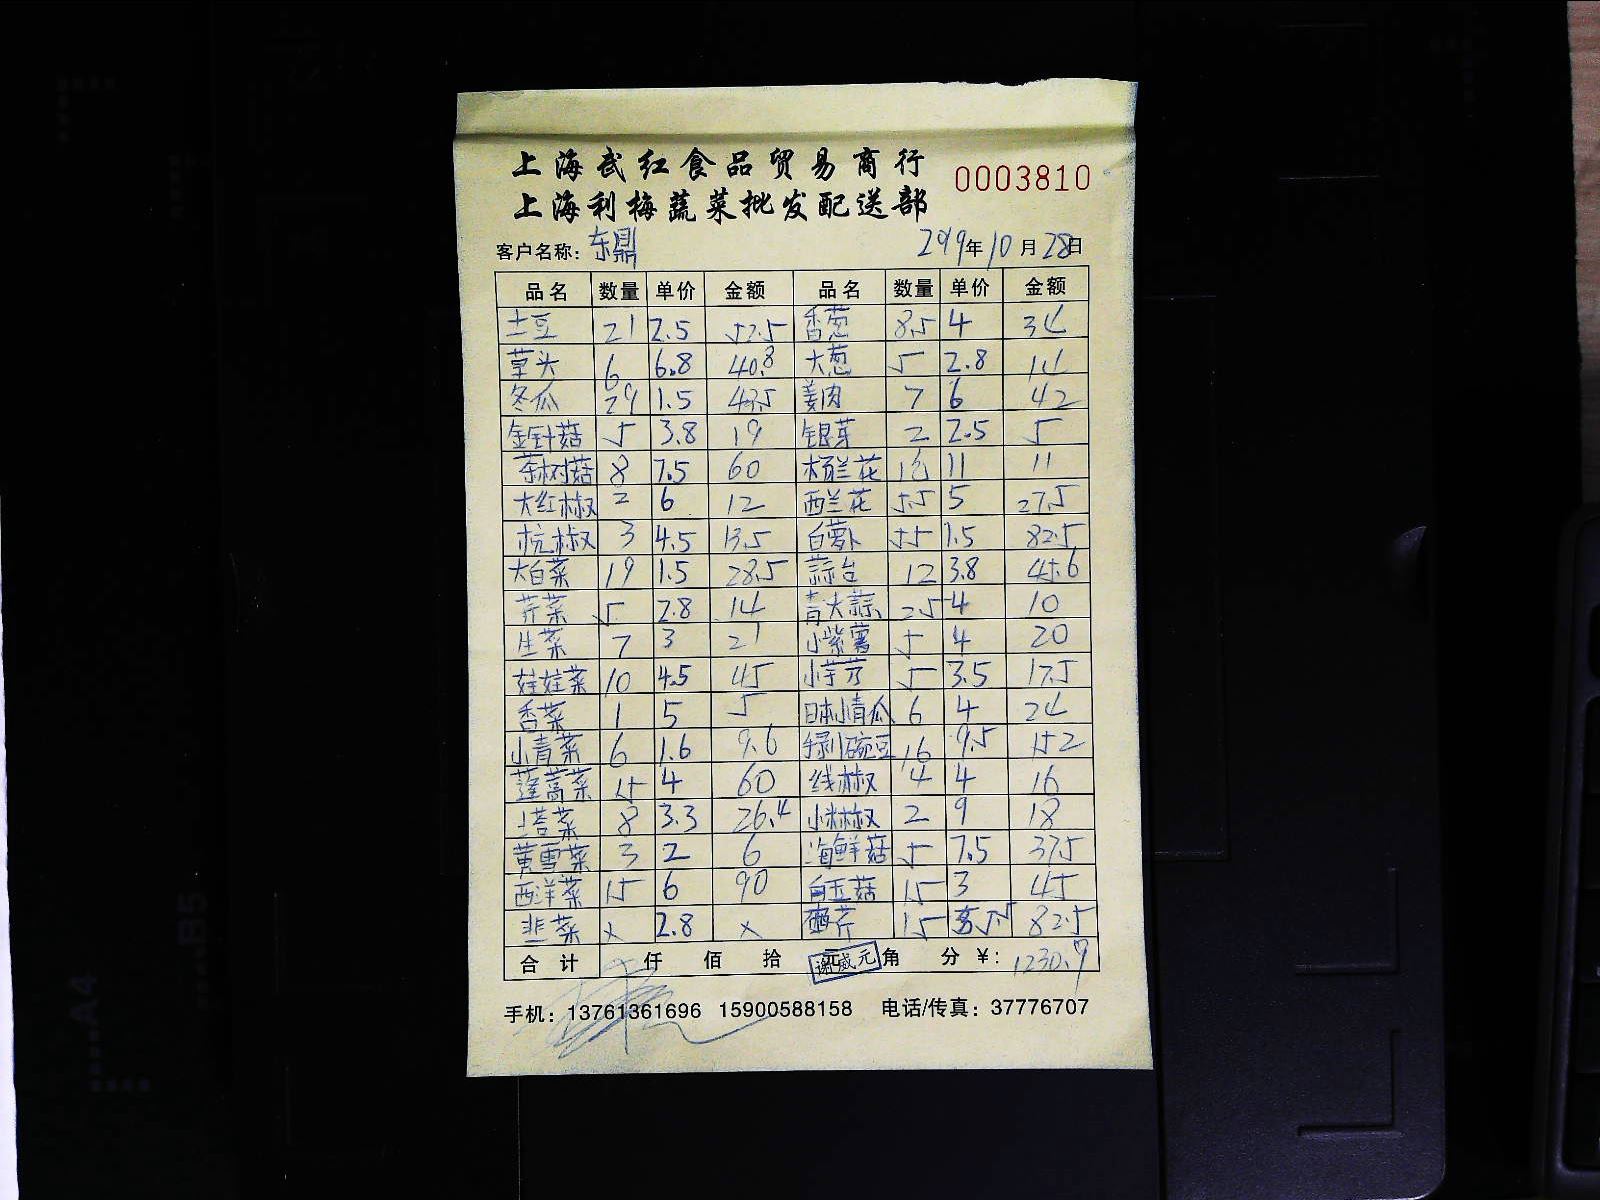 上海武红食品贸易商行
上海利梅蔬菜批发配送部
0003810
客户名称：东鼎 2019年10月28日
品名 数量 单价 金额 品名 数量 单价 金额
土豆 21 2.5 52.5 香葱 8.5 4 34
草头 6 6.8 40.8 大葱 5 2.8 14
冬瓜 29 1.5 43.5 姜肉 7 6 42
金针菇 5 3.8 19 银芽 2 2.5 5
茶树菇 8 7.5 60 杨兰花 1包 11 11
大红椒 2 6 12 西兰花 5.5 5 27.5
杭椒 3 4.5 13.5 白萝卜 55 1.5 82.5
大白菜 19 1.5 28.5 蒜台 12 3.8 45.6
芹菜 5 2.8 14 青大蒜 2.5 4 10
生菜 7 3 21 小紫薯 5 4 20
娃娃菜 10 4.5 45 小芋艿 5 3.5 17.5
香菜 1 5 5 日本小青瓜 6 4 24
小青菜 6 1.6 9.6 豌豆 16 9.5 152
蓬蒿菜 15 4 60 线椒 4 4 16
塔菜 8 3.3 26.4 小米椒 2 9 18
黄雪菜 3 2 6 海鲜菇 5 7.5 37.5
西洋菜 15 6 90 白玉菇 15 3 45
韭菜 x 2.8 x 西芹 15 5.5 82.5
合计 仟 佰 拾 元 角 分 ¥: 1230.9
谢威元
手机：13761361696 15900588158 电话/传真：37776707
A4
B5